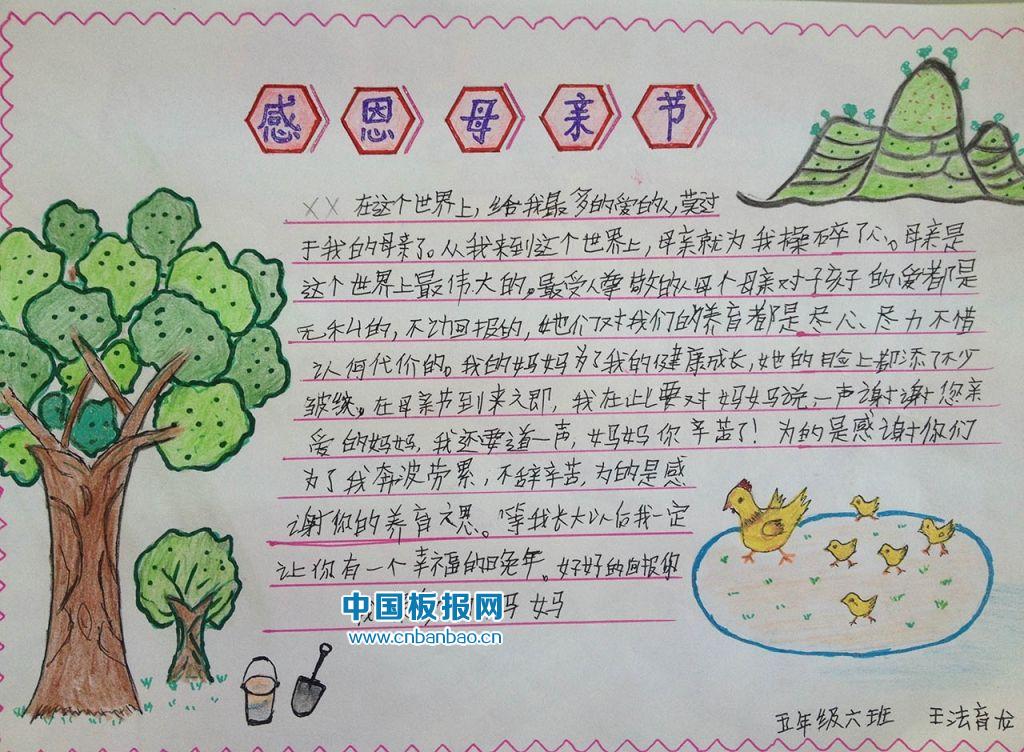 感恩母亲节
XX 在这个世界上，给我最多的爱的人，莫过
于我的母亲了。从我来到这个世界上，母亲就为我操碎了心。母亲是
这个世界上最伟大的。最受人尊敬的人。每个母亲对子孩子的爱都是
无私的，不求回报的，她们对我们的养育都是尽心、尽力不惜
认何代价的。我的妈妈为了我的健康成长，她的脸上都添了不少
皱纹。在母亲节到来之即，我在此要对妈妈说一声谢谢您亲
爱的妈妈，我还要道一声，妈妈你辛苦了！为的是感谢你们
为了我奔波劳累，不辞辛苦，为的是感
谢你的养育之恩。等我长大以后我一定
让你有一个幸福的晚年。好好的回报你
妈妈
中国板报网
www.cnbanbao.cn
五年级六班 王法育龙